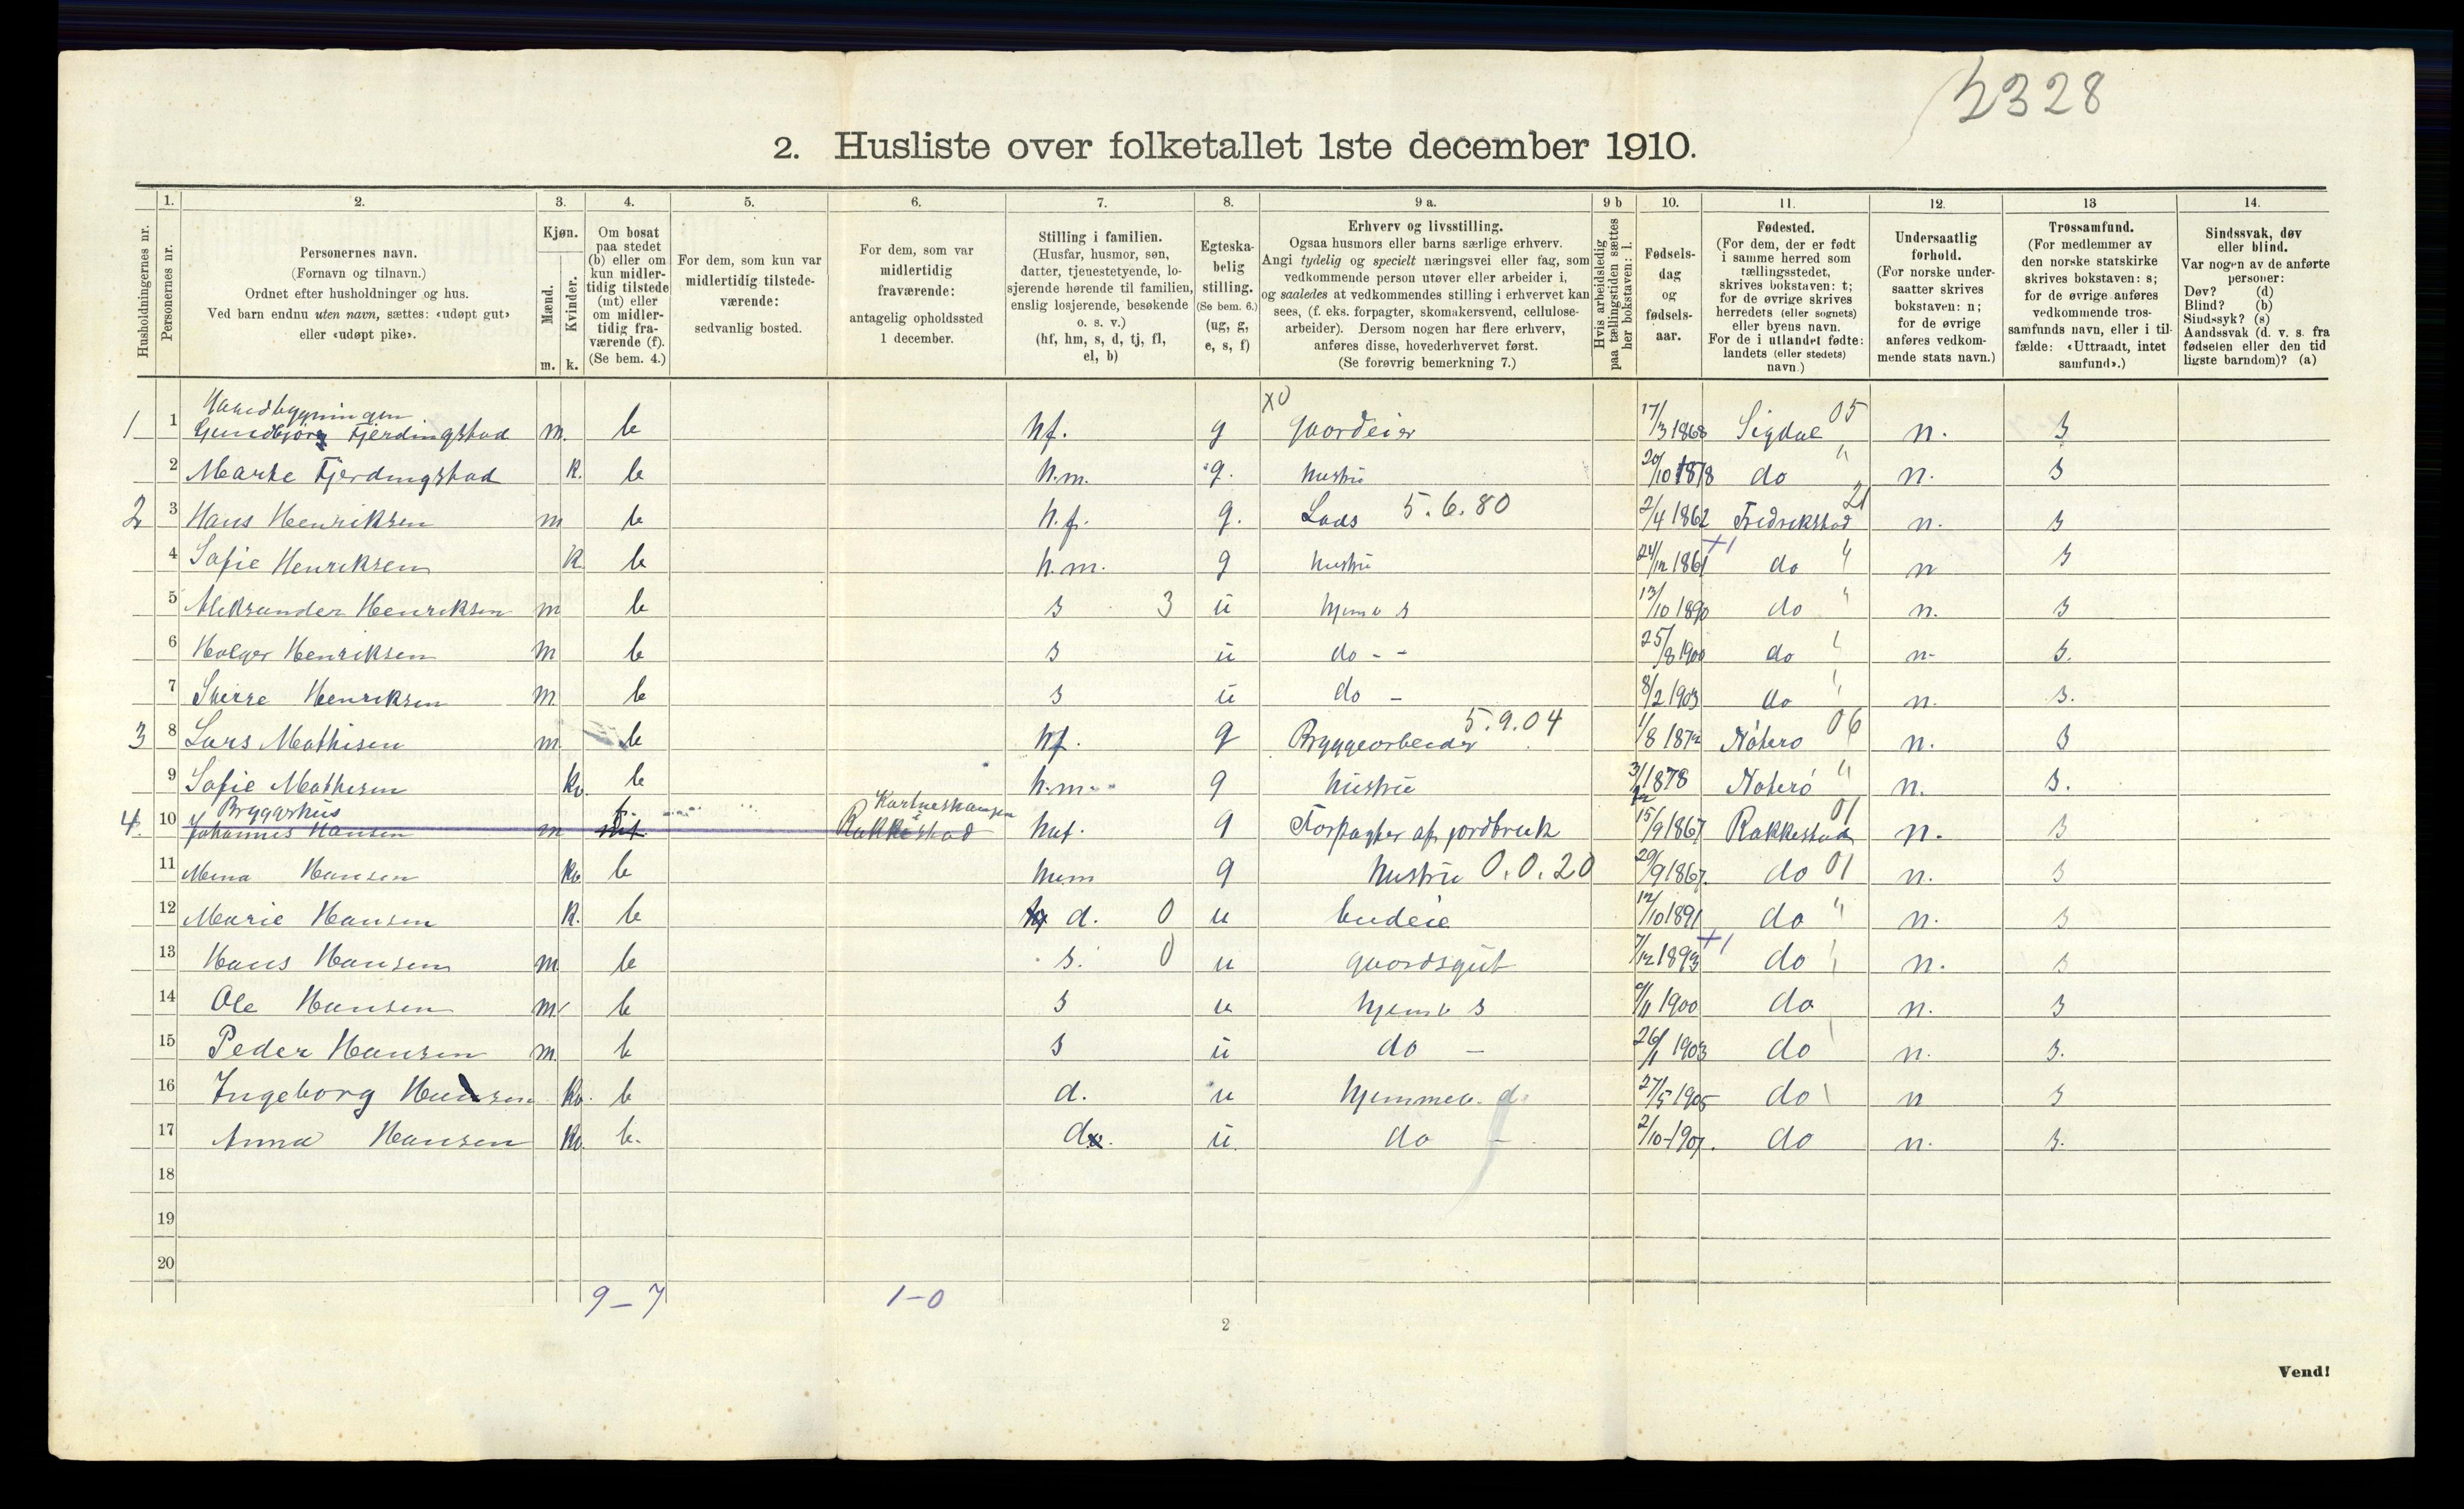 2328
2. Husliste over folketallet 1ste december 1910.
Husholdningernes nr.
1. Personernes nr.
2. Personernes navn.
(Fornavn og tilnavn.)
Ordnet efter husholdninger og hus.
Ved barn endnu uten navn, sættes: «udøpt gut»
eller «udøpt pike».
3. Kjøn.
Mænd. m.
Kvinder. k.
4. Om bosat
paa stedet
(b) eller om
kun midler-
tidig tilstede
(mt) eller
om midler-
tidig fra-
værende (f).
(Se bem. 4.)
5. For dem, som kun var
midlertidig tilstede-
værende:
sedvanlig bosted.
6. For dem, som var
midlertidig
fraværende:
antagelig opholdssted
1 december.
7. Stilling i familien.
(Husfar, husmor, søn,
datter, tjenestetyende, lo-
sjerende hørende til familien,
enslig losjerende, besøkende
o. s. v.)
(hf, hm, s, d, tj, fl,
el, b)
8. Egteska-
belig
stilling.
(Se bem. 6.)
(ug, g,
e, s, f)
9 a. Erhverv og livsstilling.
Ogsaa husmors eller barns særlige erhverv.
Angi tydelig og specielt næringsvei eller fag, som
vedkommende person utøver eller arbeider i,
og saaledes at vedkommendes stilling i erhvervet kan
sees, (f. eks. forpagter, skomakersvend, cellulose-
arbeider). Dersom nogen har flere erhverv,
anføres disse, hovederhvervet først.
(Se forøvrig bemerkning 7.)
9 b Hvis arbeidsledig
paa tællingstiden sættes
her bokstaven: l.
10. Fødsels-
dag
og
fødsels-
aar.
11. Fødested.
(For dem, der er født
i samme herred som
tællingsstedet,
skrives bokstaven: t;
for de øvrige skrives
herredets (eller sognets)
eller byens navn.
For de i utlandet fødte:
landets (eller stedets)
navn.)
12. Undersaatlig
forhold.
(For norske under-
saatter skrives
bokstaven: n;
for de øvrige
anføres vedkom-
mende stats navn.)
13 Trossamfund.
(For medlemmer av
den norske statskirke
skrives bokstaven: s;
for de øvrige anføres
vedkommende tros-
samfunds navn, eller i til-
fælde: «Uttraadt, intet
samfund».)
14. Sindssvak, døv
eller blind.
Var nogen av de anførte
personer:
Døv? (d)
Blind? (b)
Sindssyk? (s)
Aandssvak (d. v. s. fra
fødselen eller den tid
ligste barndom)? (a)
Hovedbygningen x0
1 1 Gundbjörg Fjerdingstad m. b hf. g gaardeier 17/3 1868 Sigdal 05 n. s
2 Marte Fjerdingstad k. b h.m. g. hustru 20/10 1878 do " n. s
2 3 Hans Henriksen m b h.f. g. Lods 5.6.80 2/4 1862 Fredrikstad 21 n. s
4 Sofie Henriksen k b h.m. g hustru 24/12 1861 +1 do " n s
5 Aleksander Henriksen m b s 3 u hjemv s 13/10 1890 do " n. s
6 Holger Henriksen m b s u do - - 25/8 1900 do " n- s.
7 Sverre Henriksen m b s u do - 8/2 1903 do " n. s.
3 8 Lars Mathisen m b hf. g Bryggearbeider 5.9.04 1/8 1872 Nøterø 06 n. s
9 Sofie Mathisen kv. b h.m. g hustrue 3/12 1878 Nøterø " n. s.
Bryggerhus
4. 10 Johannes Hansen m mt f. Rakkestad huf. g Forpagter af jordbruk 15/9 1867 Rakkestad 01 n. s
11 Mina Hansen kv b hum g hustru 0.0.20 29/9 1867. do 01 n. s
12 Marie Hansen k. b d. 0 u budeie 12/10 1891 do " n. s
13 Hans Hansen m b s. 0 u gaardsgut 7/12 1893 +1 do " n. s
14 Ole Hansen m b s u hjemv s /11 1900 do n. s
15 Peder Hansen m b s u do - 26/1 1903 do n. s.
16 Ingeborg Hansen kv. b d. u hjemmev. d. 27/5 1905 do n s
17 Anna Hansen kv. b. d. u. do - 2/10-1907. do n. s.
18
19
20
9-7 1-0
2
Vend!